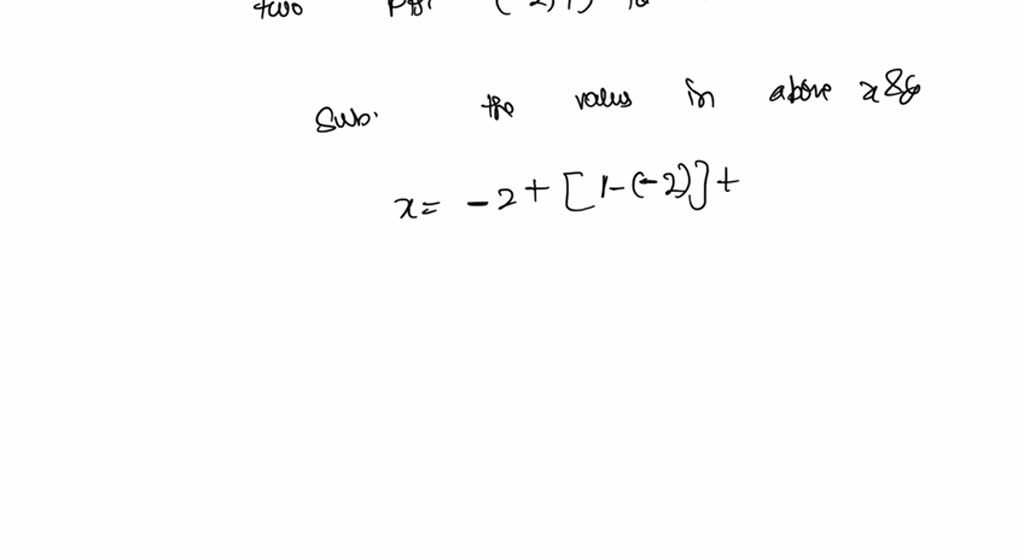 two
Sub. the values in above x &
x = -2 + [1-(-2)] t